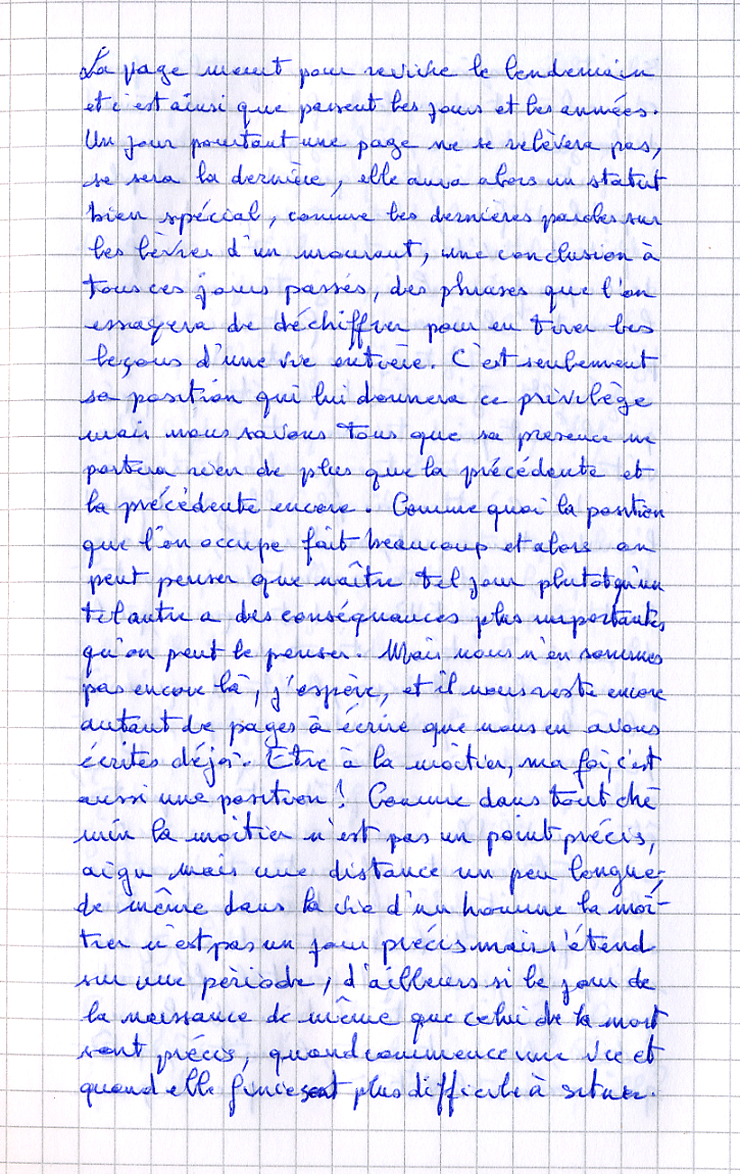 La page meurt pour revivre le lendemain
et c'est ainsi que passent les jours et les années.
Un jour pourtant une page ne se relèvera pas,
se sera la dernière, elle aura alors un statut
bien spécial, comme les dernières paroles sur
les lèvres d'un mourant, une conclusion à
tous ces jours passés, des phrases que l'on
essayera de déchiffrer pour en tirer les
leçons d'une vie entière. C'est seulement
sa position qui lui donnera ce privilège
mais nous savons tous que sa présence ne
portera rien de plus que la précédente et
la précédente encore. Comme quoi la position
que l'on occupe fait beaucoup et alors on
peut penser que naître tel jour plutot qu'un
tel autre a des conséquances plus importantes
qu'on peut le penser. Mais nous n'en sommes
pas encore là, j'espère, et il nous reste encore
autant de pages à écrire que nous en avons
écrites déjà. Etre à la moitier, ma foi, c'est
aussi une position! Comme dans tout che
min la moitier n'est pas un point précis,
aigu mais une distance un peu longue,
de même dans la vie d'un homme la moi-
tier n'est pas un jour précis mais s'étend
sur une période, d'ailleurs si le jour de
la naissance de même que celui de la mort
sont précis, quand commence une vie et
quand elle finie sont plus difficile à situer.